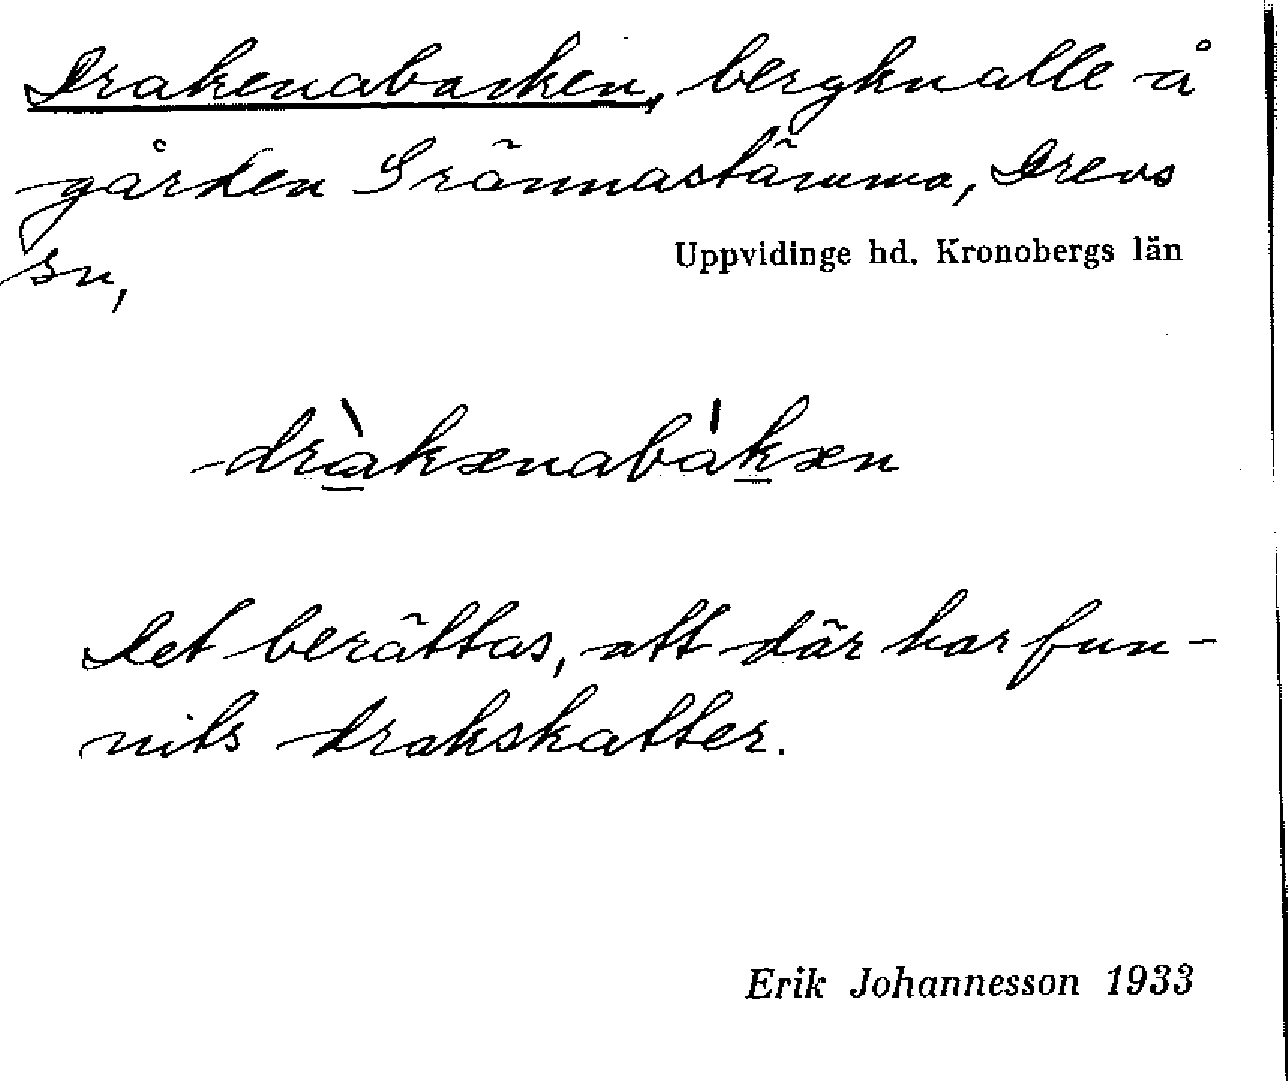 Drakenabacken, bergknalle å
gården Grännastämma, Drevs
sn,
Uppvidinge hd. Kronobergs län
dràkænabákæn
Det berättas, att där har fun-
nits drakskatter.
Erik Johannesson 1933